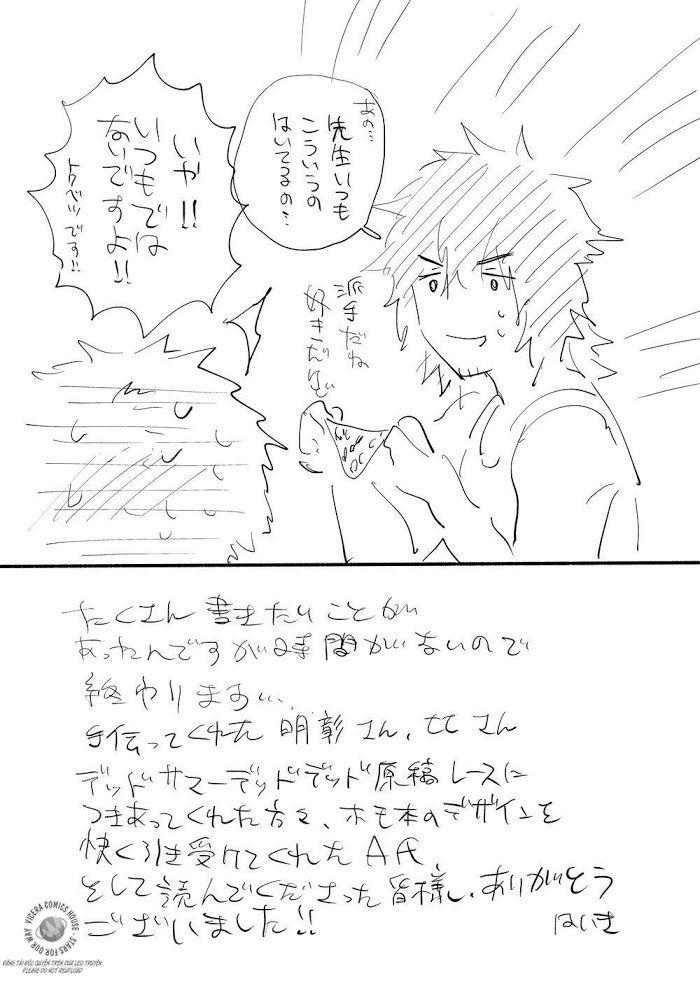 あの…
先生いつも
こういうの
はいてるの…
いや!!
いつもでは
ないですよ!!
トクベツです!!
派手だね
好きだな
たくさん書きたいことが
あったんですが時間がないので
終わります…
手伝ってくれた明彰さん、ヒヒさん
デッドサマーデッドデッド原稿レースに
つきあってくれた方々、ホモ本のデザインを
快く引き受けてくれたA氏
そして読んでくださった皆様、ありがとう
ございました!!
はいき
VICERA COMICS HOUSE - STARS FOR OUR WAY
ĐĂNG TẢI ĐỘC QUYỀN TRÊN DƯA LEO TRUYỆN
PLEASE DO NOT REUPLOAD